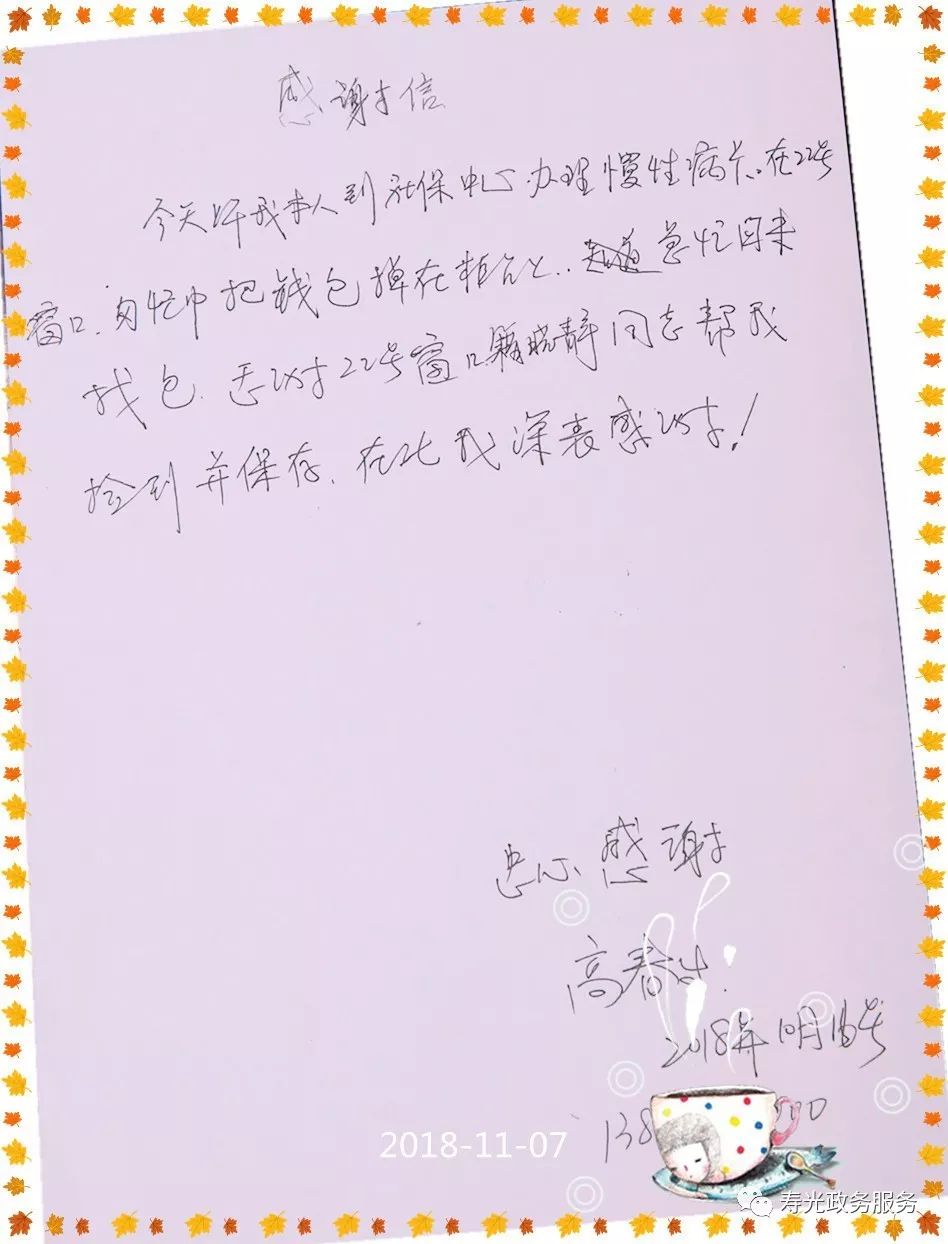 感谢信
今天上午我本人到社保中心办理慢性病卡。在22号
窗口.匆忙中把钱包掉在柜台上..急忙回来
找包.感谢22号窗口晓静同志帮我
捡到并保存.在此我深表感谢！
忠心感谢
高春
2018年10月16号
138
00
2018-11-07
寿光政务服务